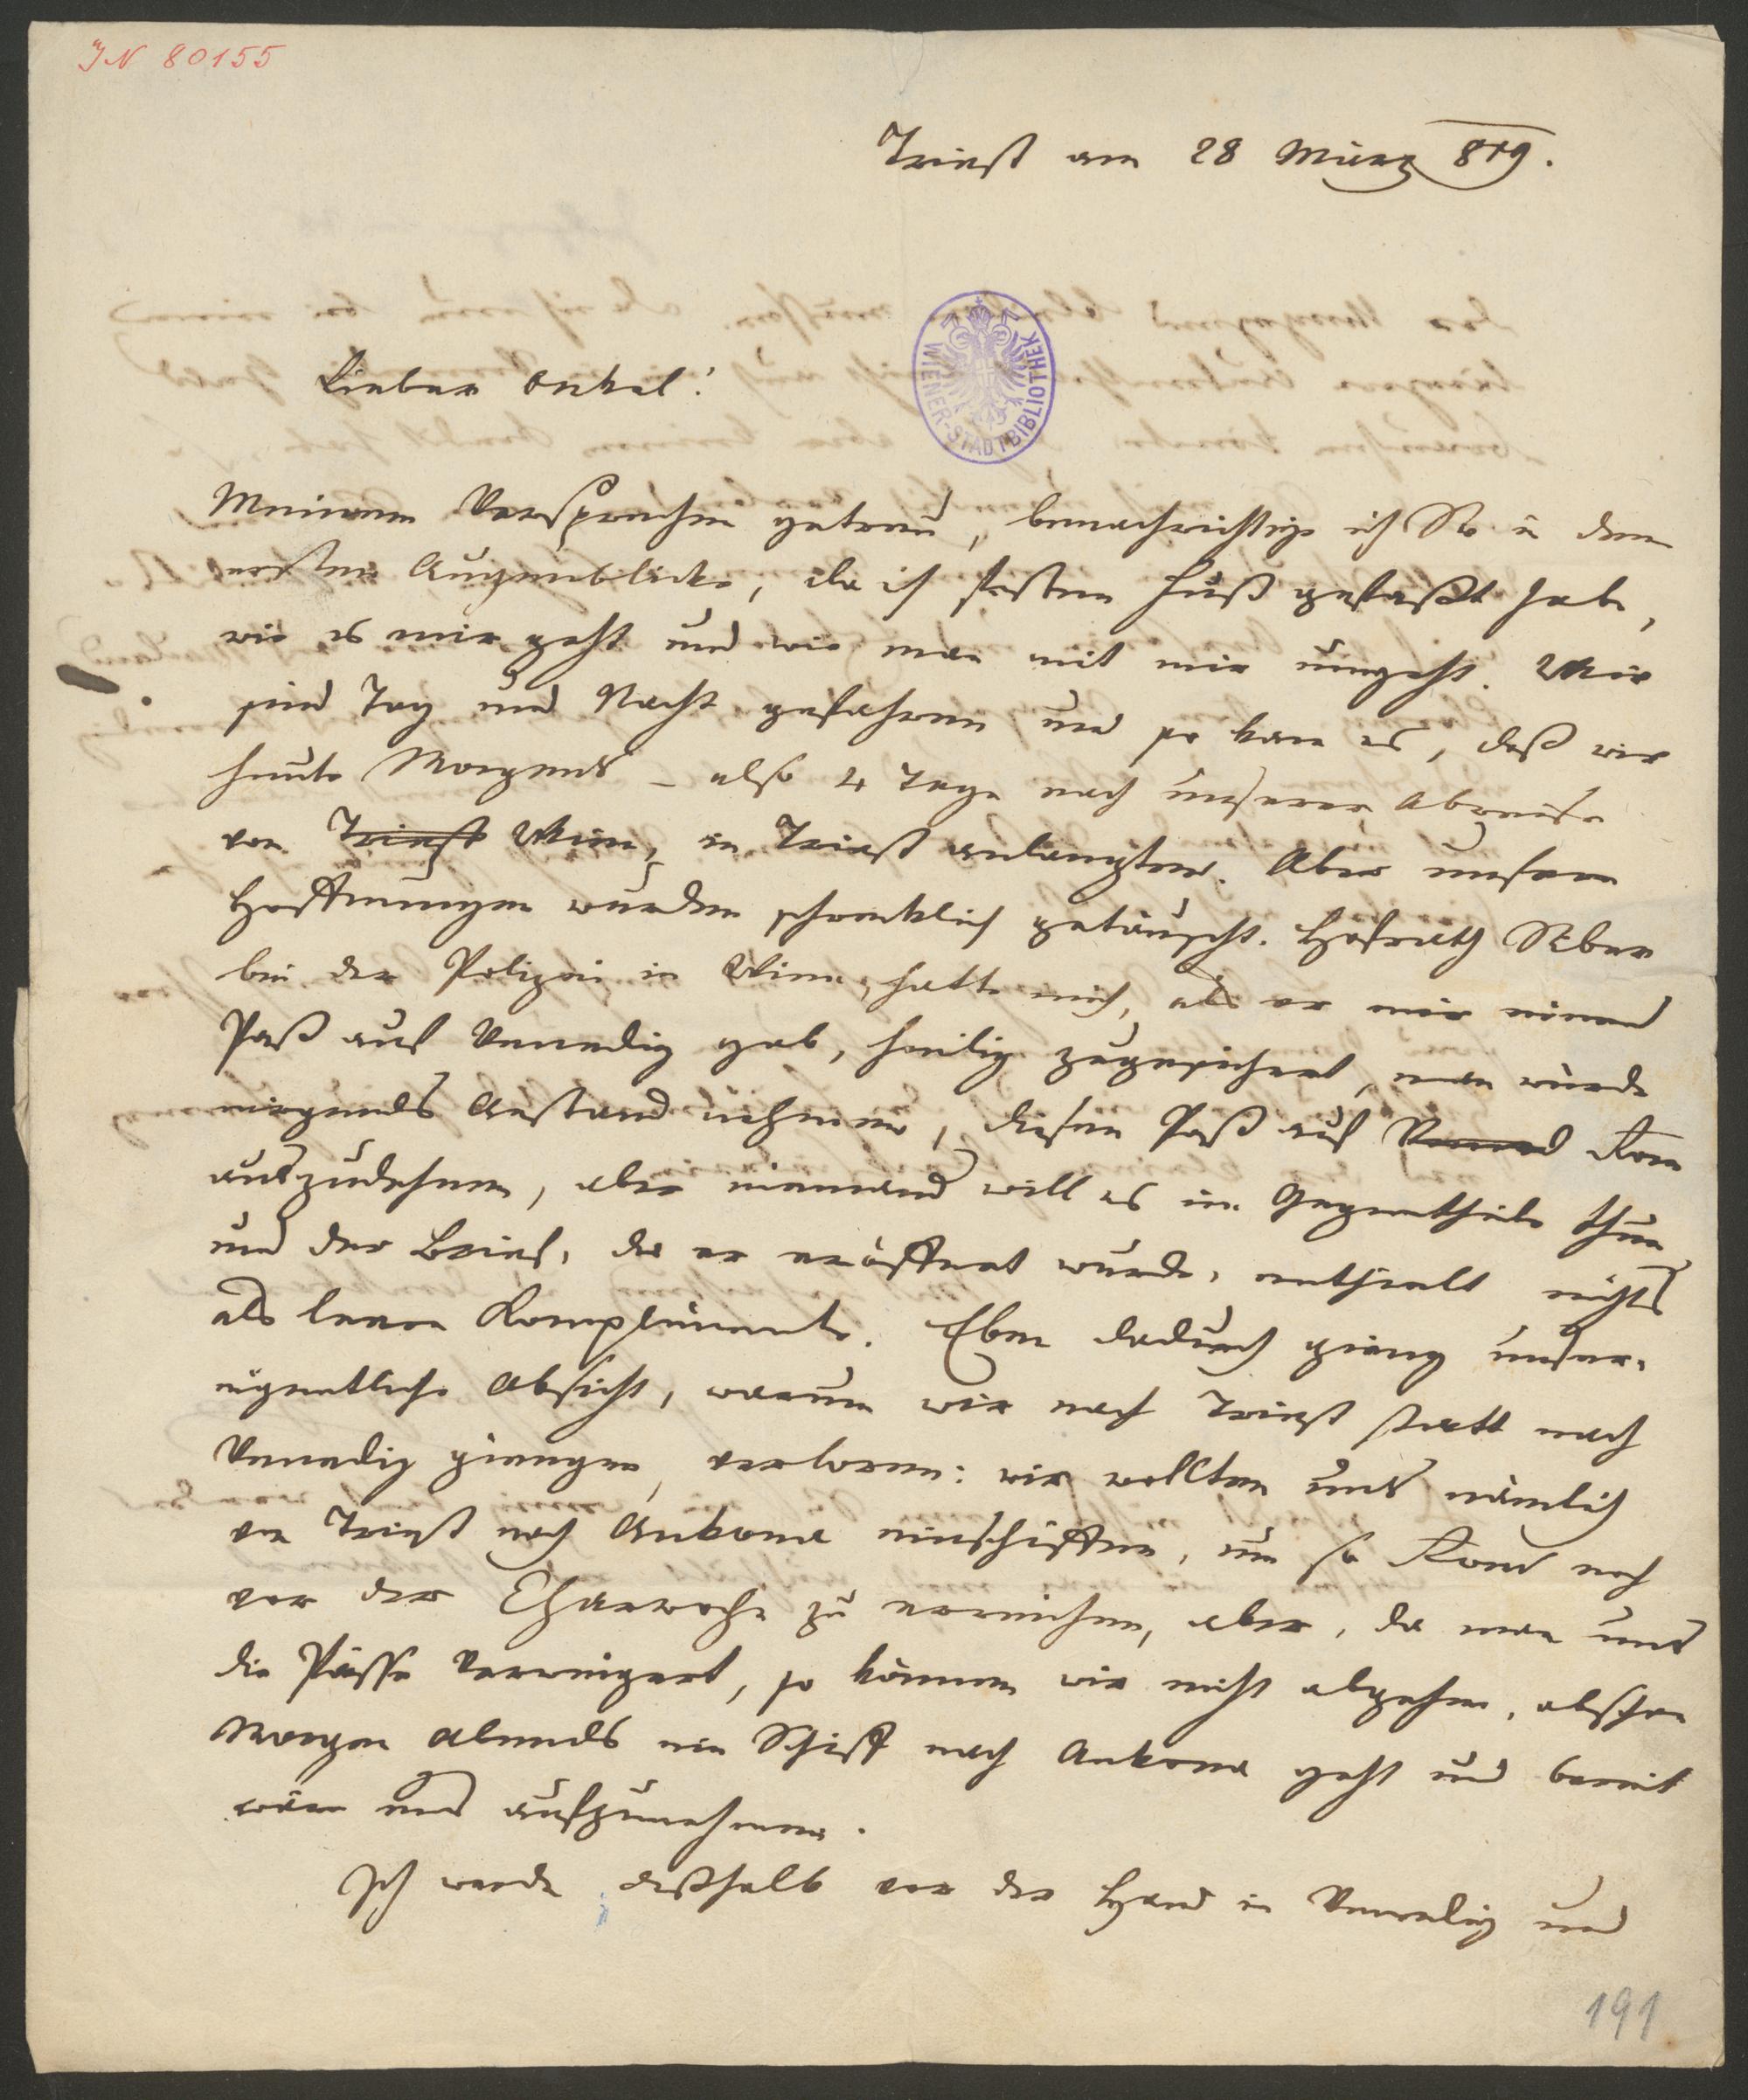 IN 80155
Triest am 28 März 819.
WIENER-STADTBIBLIOTHEK
Lieber Onkel!
Meinem Versprechen getreu, benachrichtige ich Sie in dem
ersten Augenblicke, da ich festen Fuß gefaßt habe,
wie es mir geht und wie man mit mir umgeht. Wir
sind Tag und Nacht gefahren und so kam es, daß wir
heute Morgends – also 4 Tage nach unserer Abreise
von Triest Wien, in Triest anlangten. Aber unsere
Hoffnungen wurden schrecklich getäuscht. Hofrath Siber
bei der Polizei in Wien, hatte mich, als er mir einen
Paß auf Venedig gab, heilig zugesichert, man würde
nirgends Anstand nehmen, diesen Paß auf Vened Rom
auszudehnen, aber niemand will es im Gegentheile thun
und der Brief, da er eröffnet wurde, enthielt nichts
als leere Komplimente. Eben dadurch gieng unsere
eigentliche Absicht, warum wir nach Triest statt nach
Venedig giengen, verloren: wir wollten uns nämlich
von Triest nach Ankona einschiffen, um so Rom noch
vor der Charwoche zu erreichen, aber, da man uns
die Pässe verweigert, so können wir nicht abgehen, obschon
Morgen Abends ein Schiff nach Ankona geht und bereit
wäre uns aufzunehmen.
Ich werde deßhalb vor der Hand in Venedig und
191